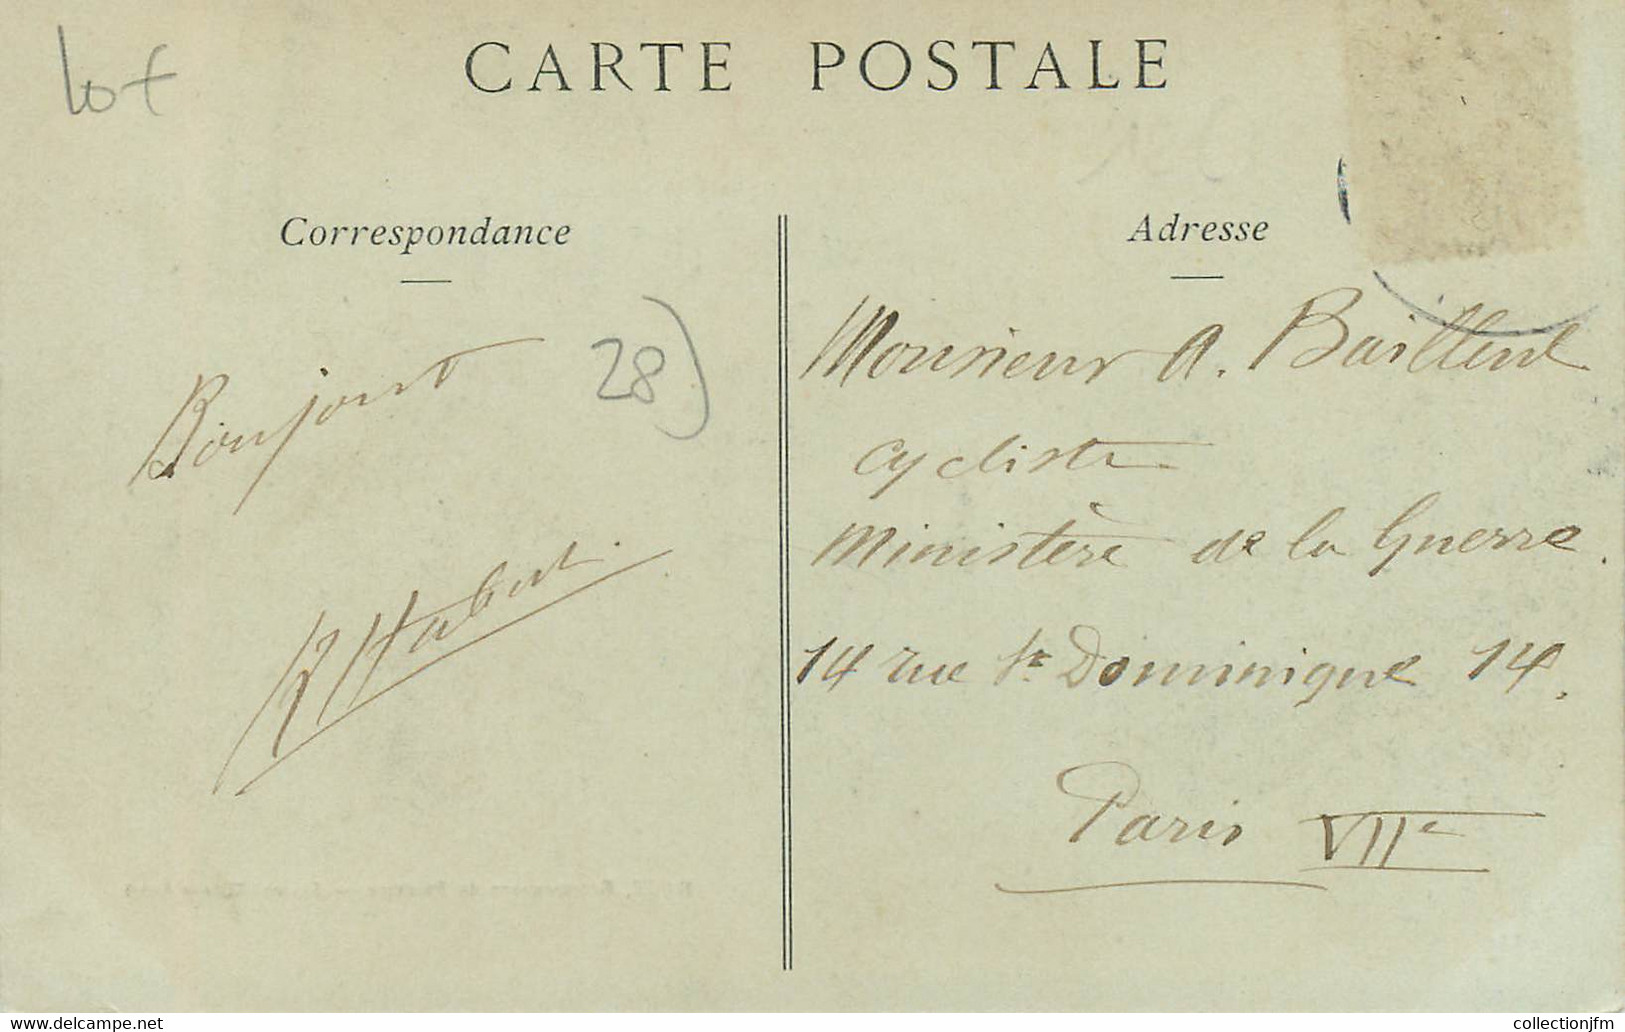 lot
CARTE POSTALE
Correspondance
Adresse
28)
Bonjour
Monsieur A.
cycliste
Ministère de la Guerre.
14 rue St Dominique 14.
Paris VIIe
www.delcampe.net
collectionjfm